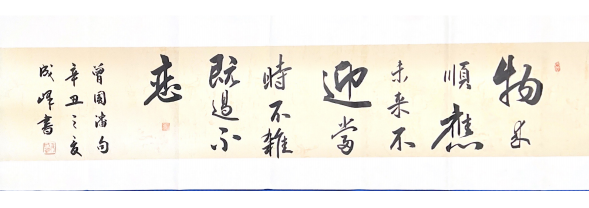 物来
順應
未来不
迎當
時不雜
既過不
恋
曾國藩句
辛丑之夏
成峰書